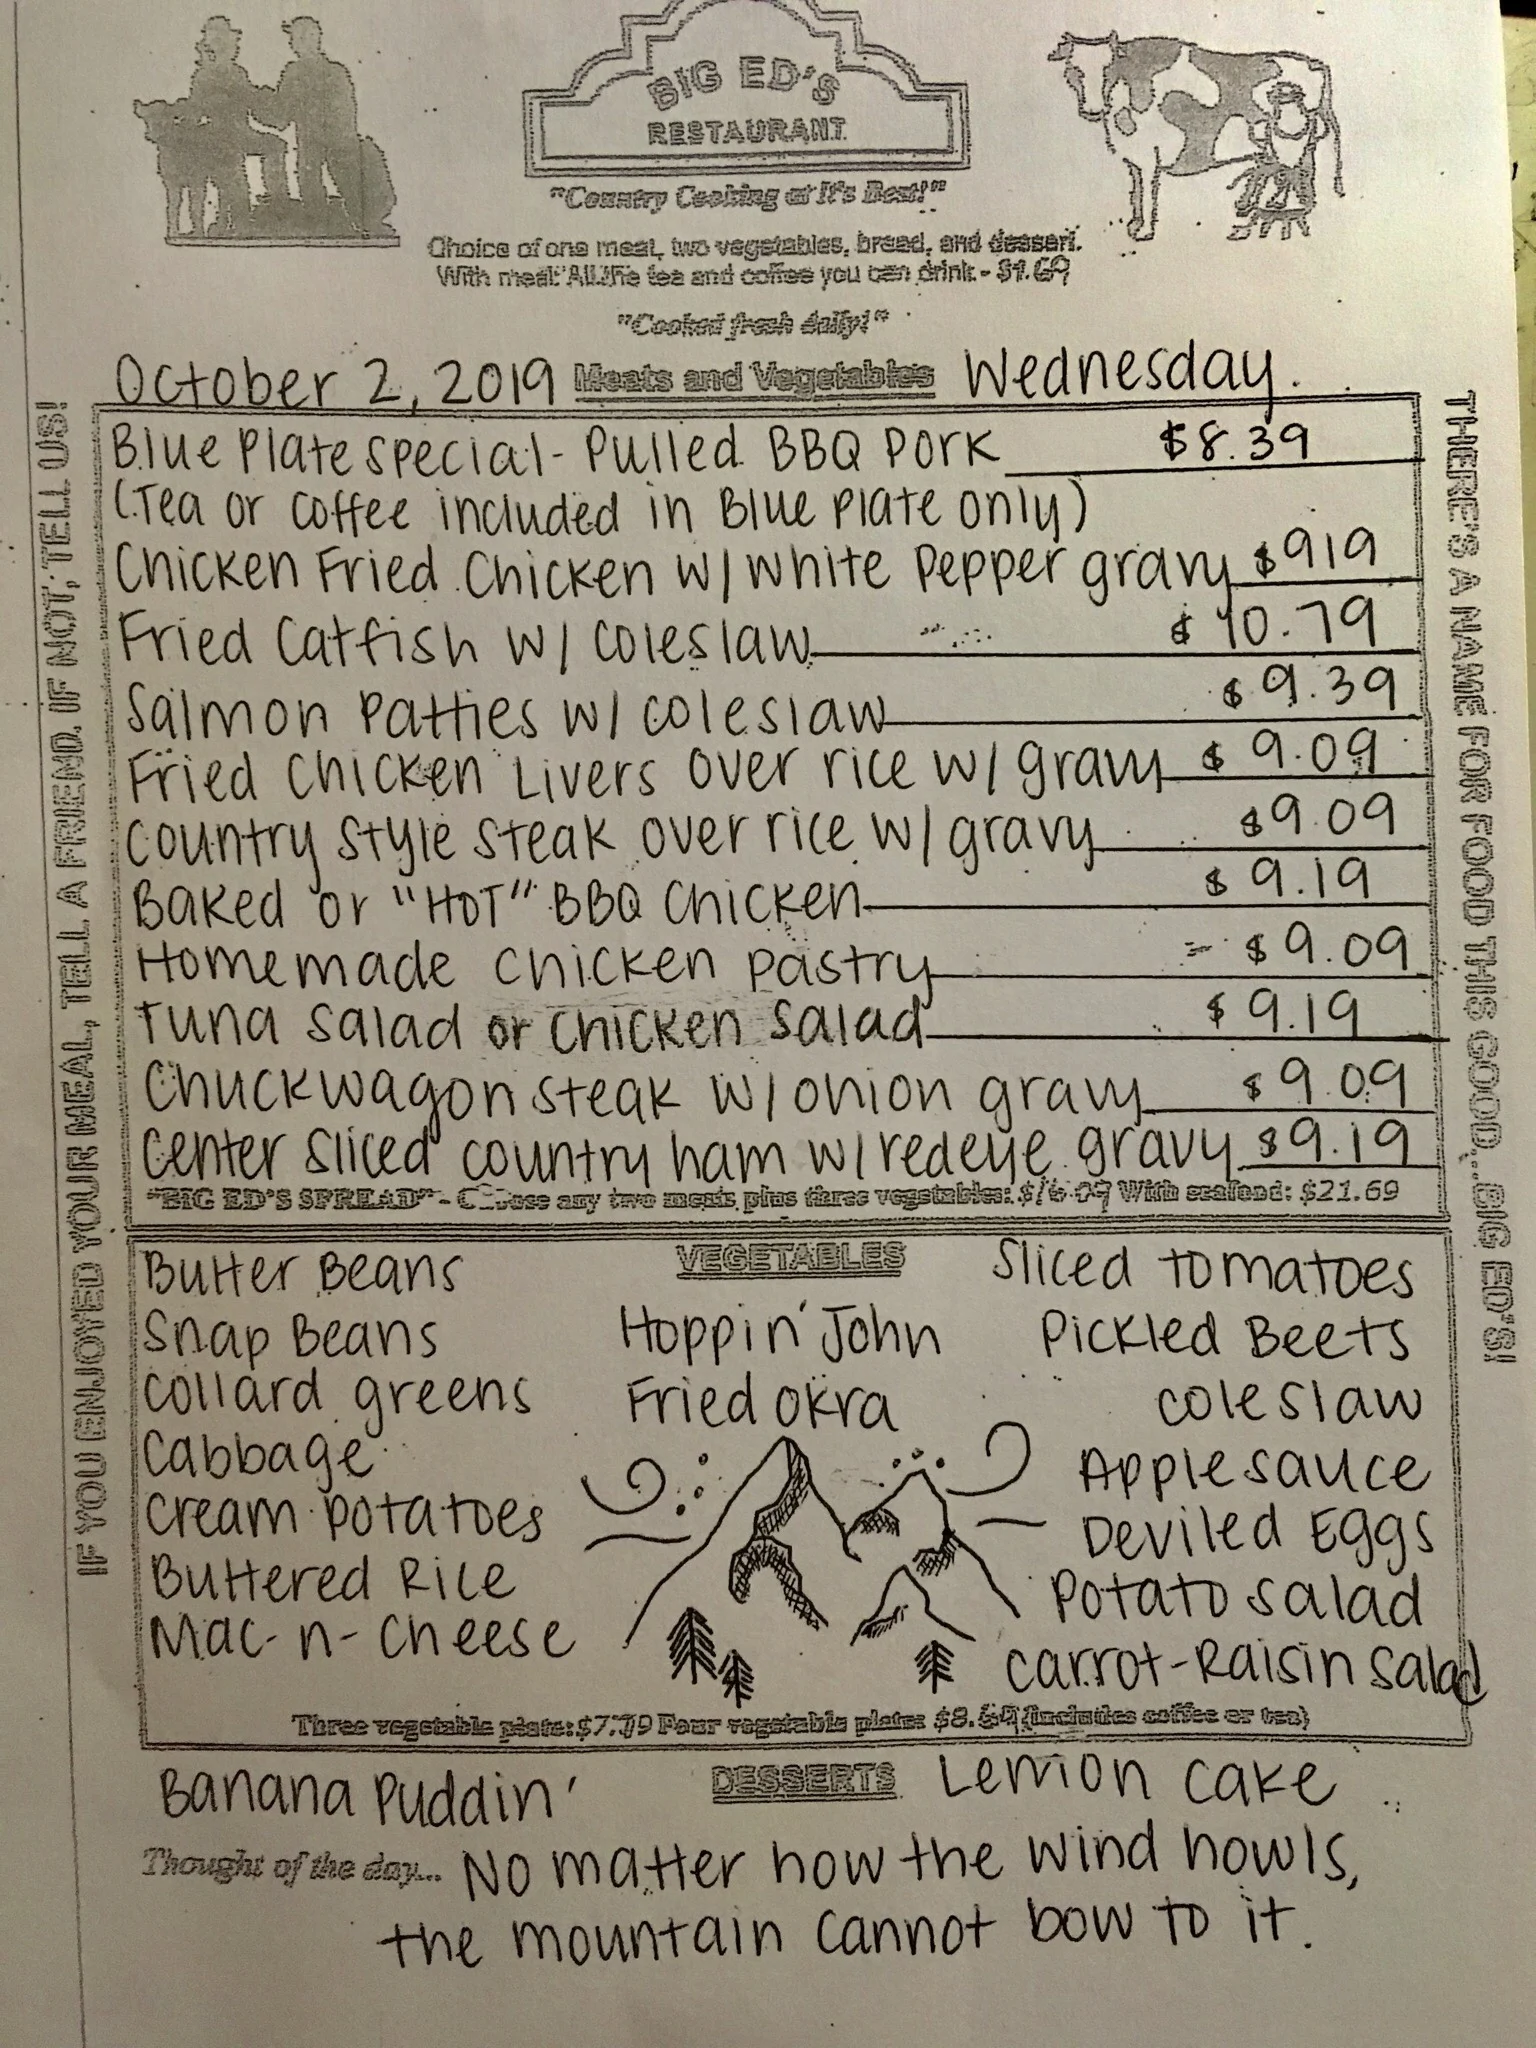 BIG ED'S
RESTAURANT
"Country Cooking at It's Best!"
Choice of one meat, two vegetables, bread, and dessert.
With meal: All the tea and coffee you can drink - $1.69
"Cooked fresh daily!"
October 2, 2019 Meats and Vegetables Wednesday.
Blue Plate Special - Pulled BBQ Pork $8.39
(Tea or Coffee included in Blue Plate only)
Chicken Fried Chicken w/ White Pepper gravy $919
Fried Catfish w/ Coleslaw $10.79
Salmon Patties w/ coleslaw $9.39
Fried Chicken Livers over rice w/ gravy $9.09
Country Style Steak over rice w/ gravy $9.09
Baked or "HOT" BBQ Chicken $9.19
Homemade Chicken Pastry $9.09
Tuna Salad or Chicken Salad $9.19
Chuckwagon Steak w/ onion gravy $9.09
Center Sliced Country ham w/ redeye gravy $9.19
"BIG ED'S SPREAD" - Choose any two meats plus three vegetables: $16.09 With seafood: $21.69
VEGETABLES
Butter Beans
Snap Beans
Collard greens
Cabbage
Cream Potatoes
Buttered Rice
Mac-n-Cheese
Hoppin' John
Fried Okra
Sliced Tomatoes
Pickled Beets
Coleslaw
Applesauce
Deviled Eggs
Potato Salad
Carrot-Raisin Salad
Three vegetable plate: $7.79 Four vegetable plate: $8.69 (includes coffee or tea)
Banana Puddin' DESSERTS Lemon Cake
Thought of the day... No matter how the wind howls,
the mountain cannot bow to it.
IF YOU ENJOYED YOUR MEAL, TELL A FRIEND. IF NOT, TELL US!
THERE'S A NAME FOR FOOD THIS GOOD...BIG ED'S!